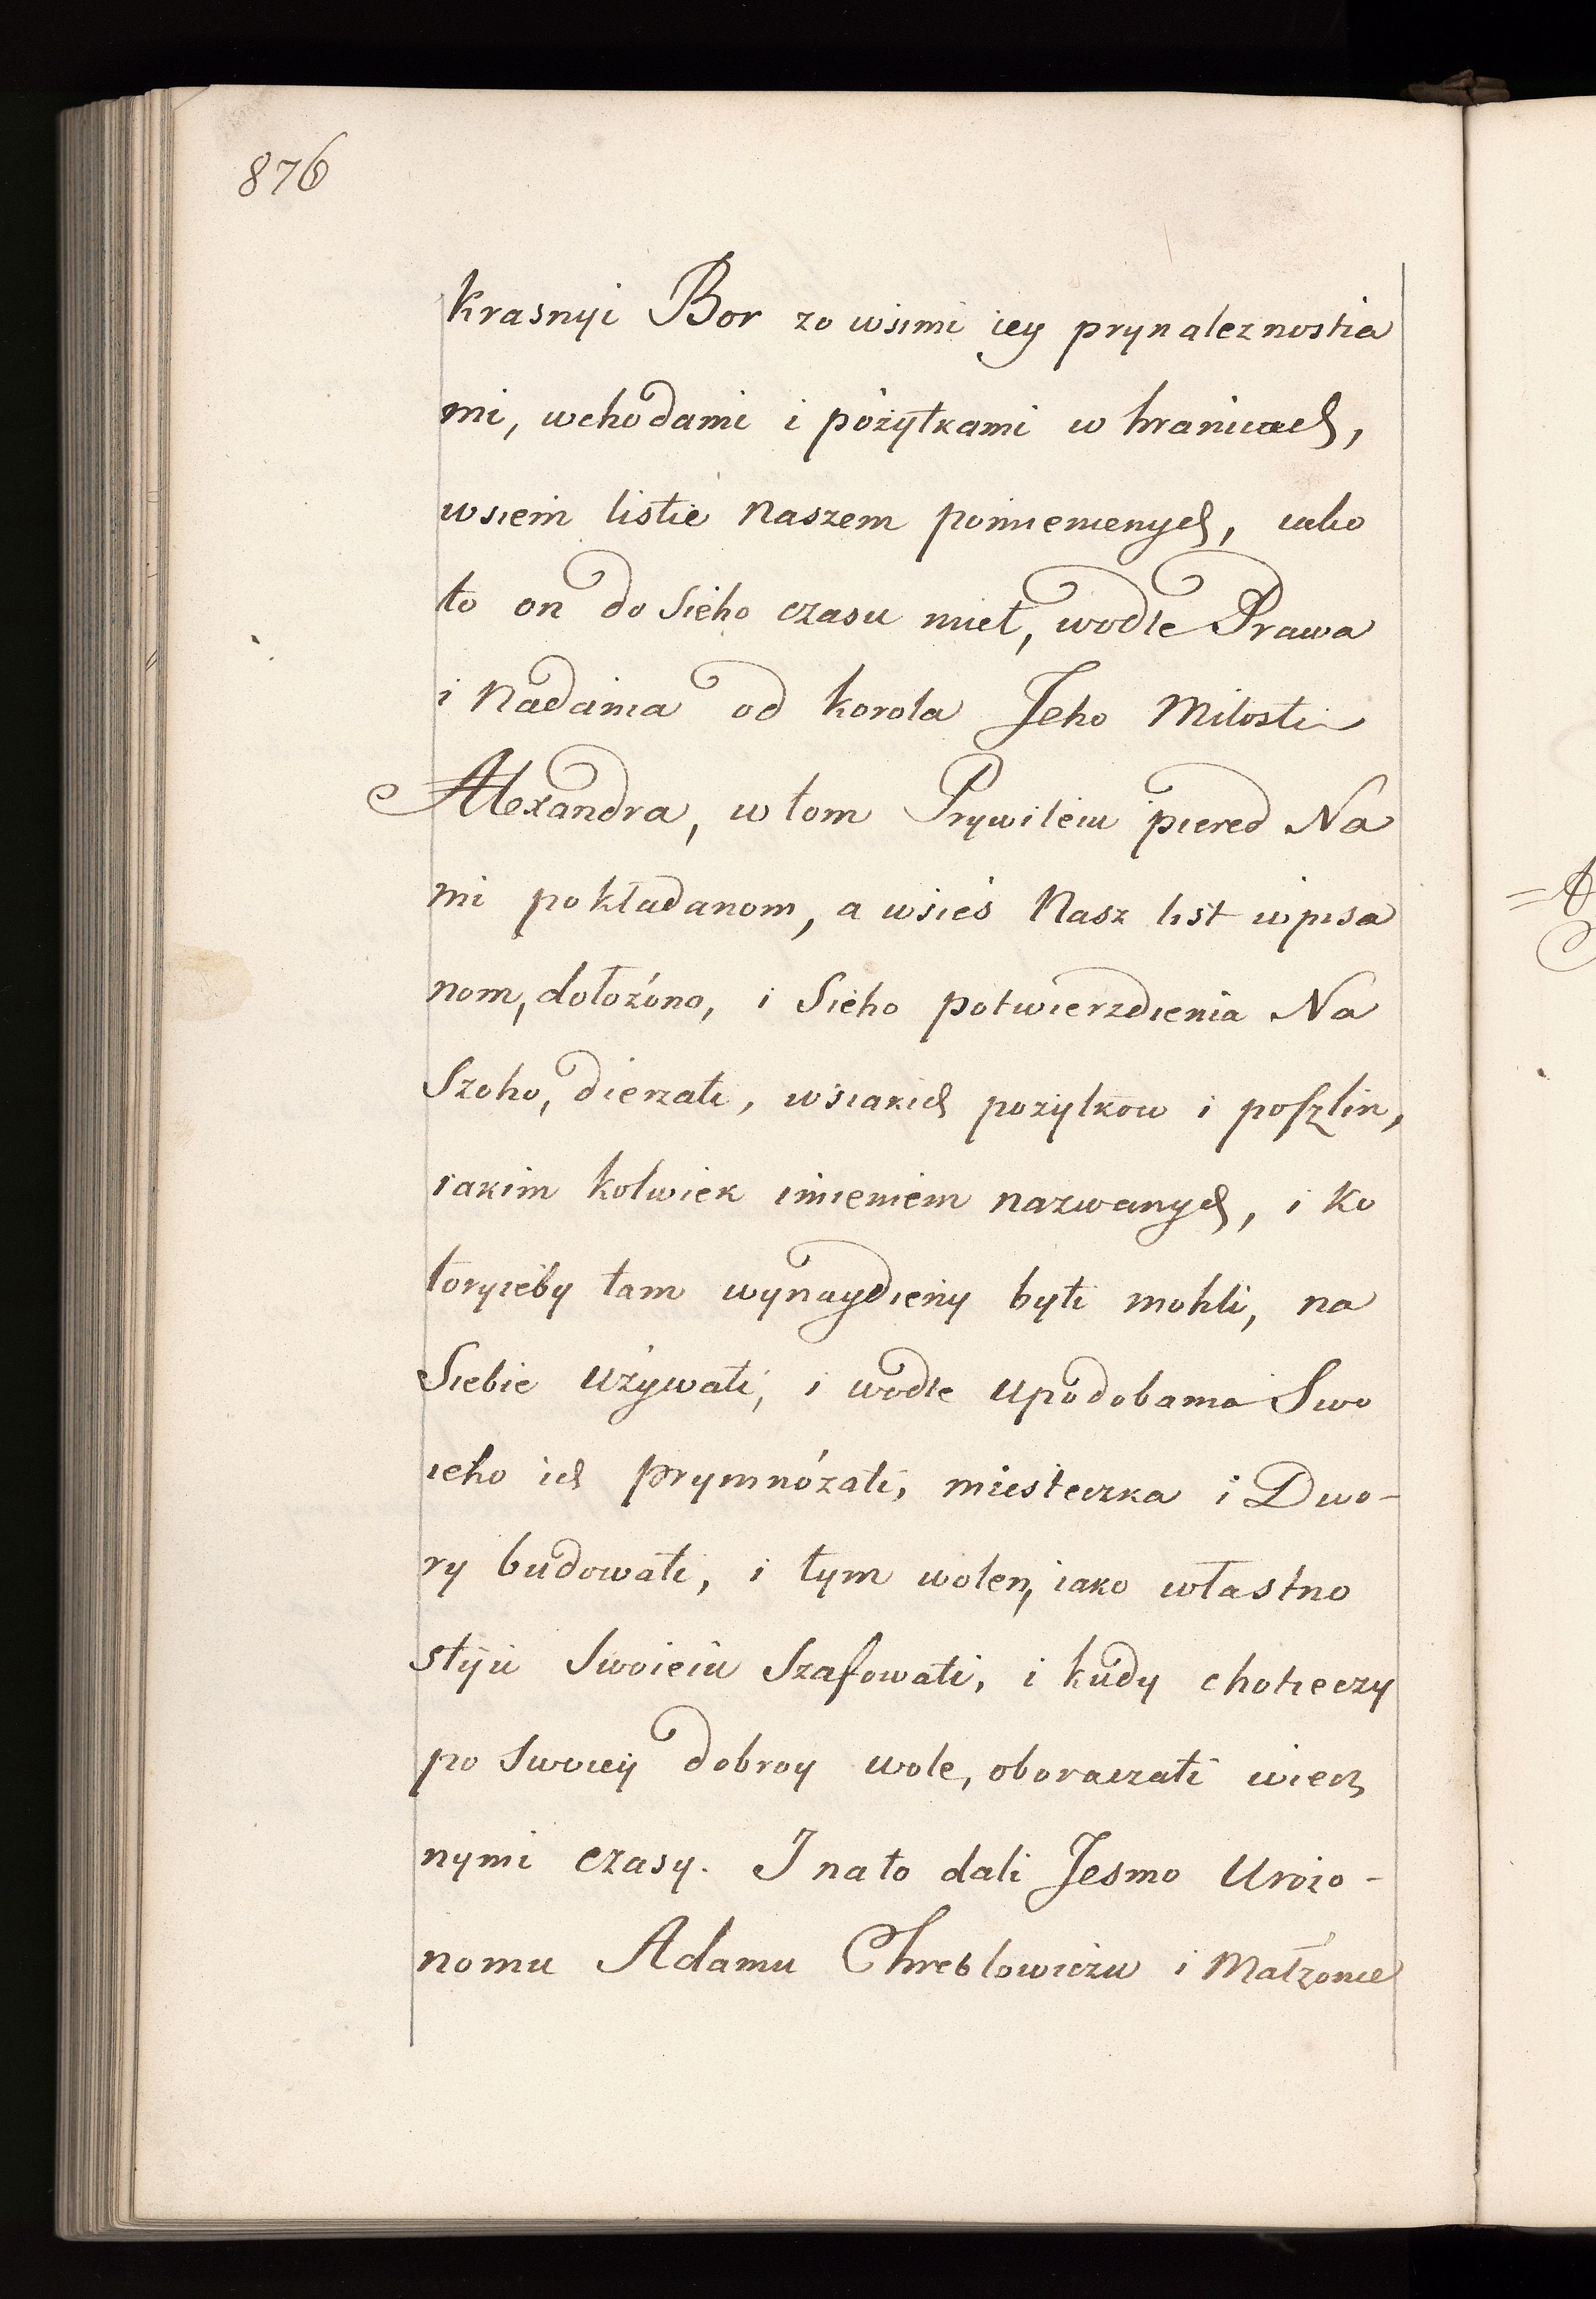 876
Krasnyi Bor zo wsimi iey prynaleznostia
mi, wchodami i pożytkami w hranicach,
wsiem listie Naszem pomienienych, iako
to on do Sieho czasu mieł, wodle Prawa
i Nadania od korola Jeho Miłosti
Alexandra, w tom Prywileiu piered Na
mi pokładanom, a wsieś Nasz list wpisa
nom, dołożono, i Sieho potwierzdienia Na
Szoho, dierzati, wsiakich pożytkow i poszlin,
iakim kolwiek imieniem nazwanych, i ko
toryieby tam wynaydieny byti mohli, na
Siebie używati, i wodle upodobania Swo
ieho ich prymnóżati, miesteczka i Dwo-
ry budowati, i tym wolen, iako własno
stiju Swoieiu Szafowati, i kudy chotieczy
po Swoiey dobroy wole, oboraczati wiecz
nymi czasy. I na to dali Jesmo Urożo-
nomu Adamu Chreblowiczu i Małżonce